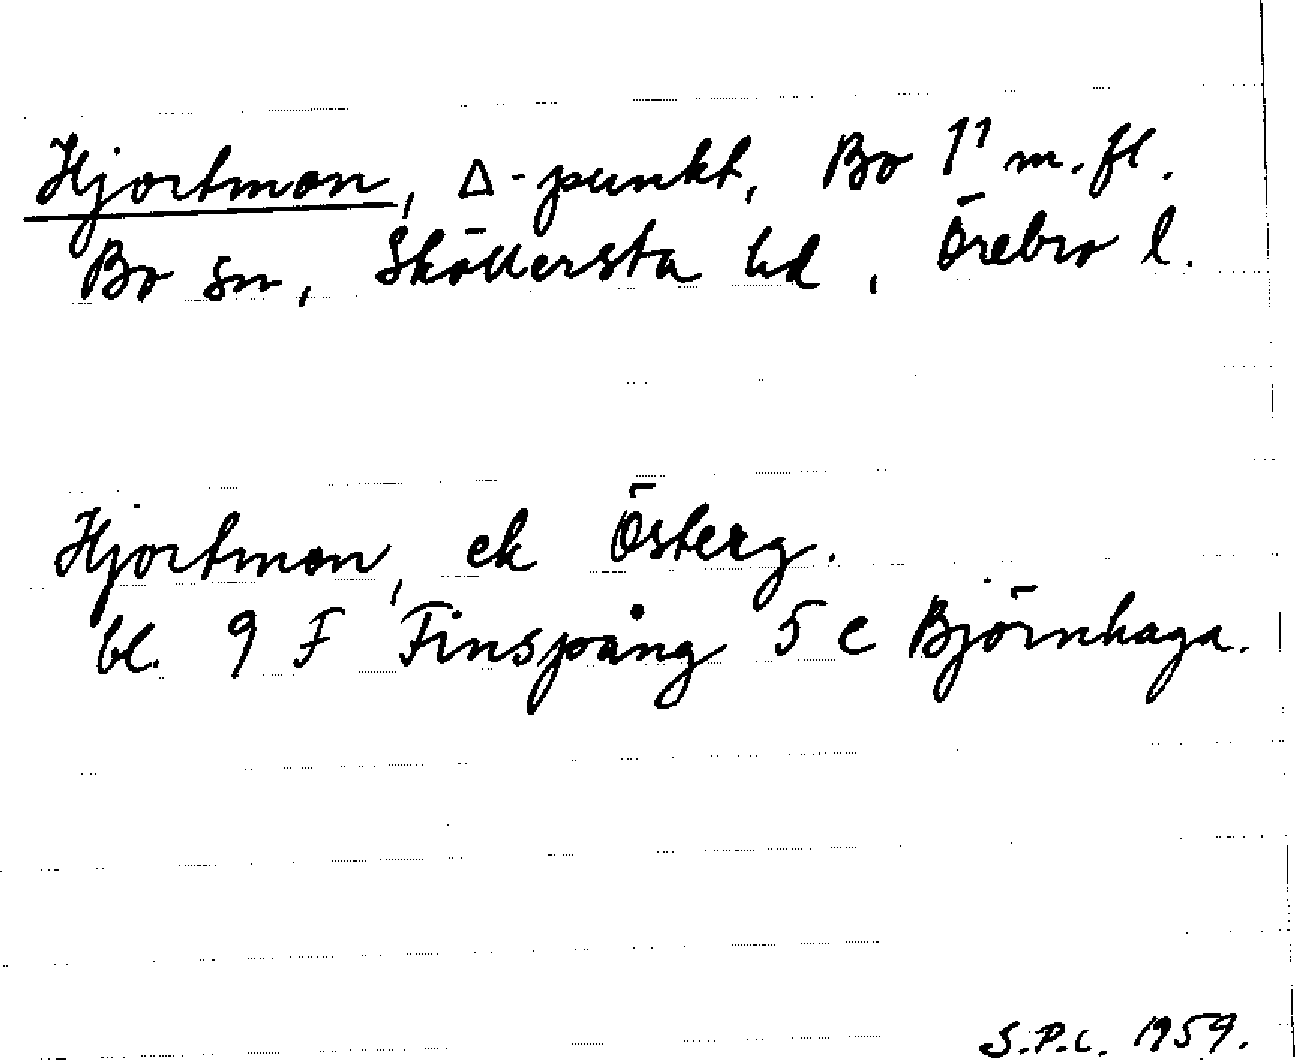 Hjortmon, Δ-punkt, Bo 1¹ m.fl.
Bo sn, Sköllersta hd, Örebro l.
Hjortmon, ek Österg.
bl. 9 F Finspång 5 c Björnhaga.
S.P.C. 1959.